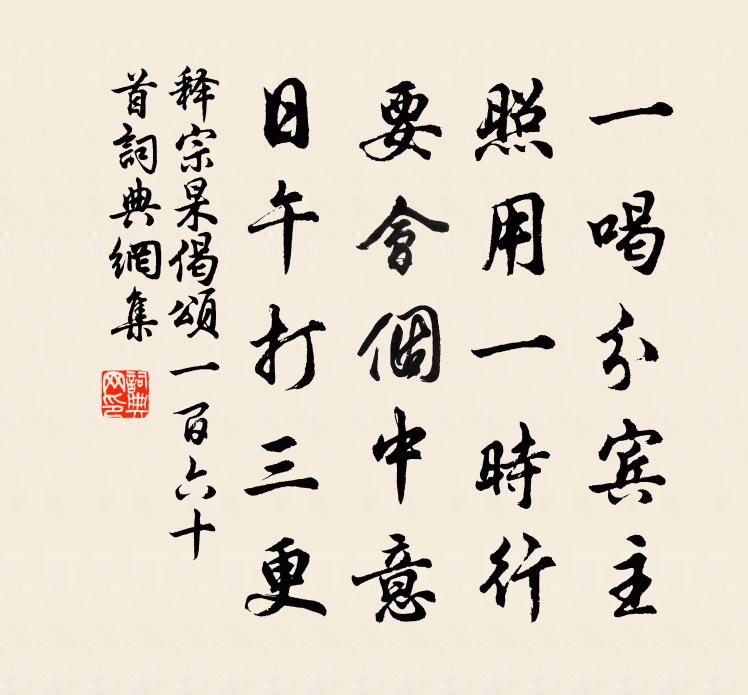 一喝分賓主
照用一時行
要會個中意
日午打三更
释宗杲偈頌一百六十
首詞典網集
詞典
网印